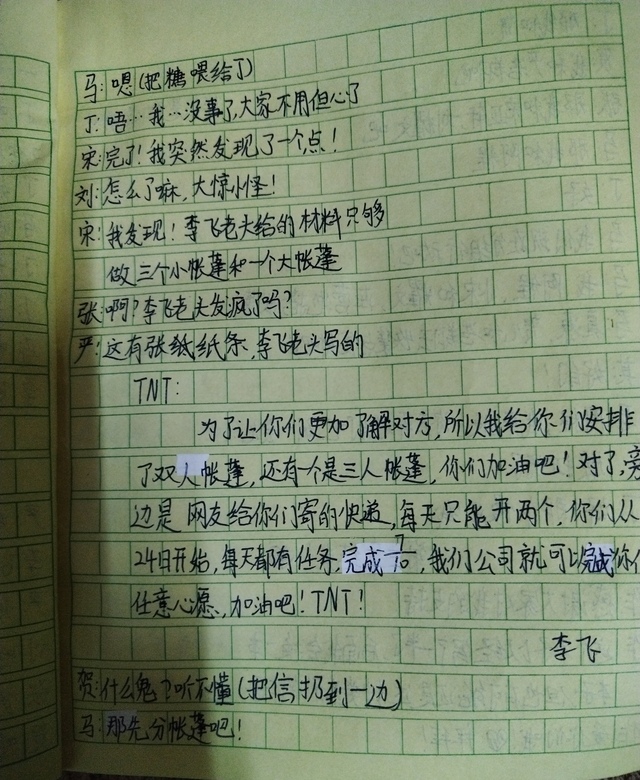 马:嗯(把糖喂给丁)
丁:唔…我…没事了,大家不用但心了
宋:完了!我突然发现了一个点!
刘:怎么了嘛,大惊小怪!
宋:我发现!李飞老头给的材料只够
做三个小帐蓬和一个大帐蓬
张:啊?李飞老头发疯了吗?
严:这有张纸纸条,李飞老头写的
TNT:
为了让你们更加了解对方,所以我给你们安排
了双人帐蓬,还有一个是三人帐蓬,你们加油吧!对了,旁
边是网友给你们寄的快递,每天只能开两个,你们从
24日开始,每天都有任务,完成7/10,我们公司就可以完成你们
任意心愿,加油吧!TNT!
李飞
贺:什么鬼?听不懂(把信扔到一边)
马:那先分帐蓬吧!